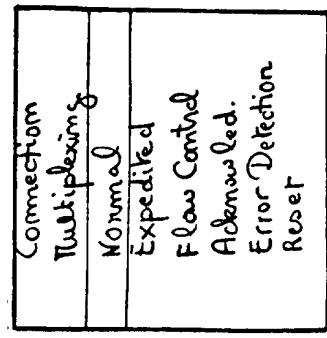 Connection
Multiplexing
Normal
Expedited
Flow Control
Acknowled.
Error Detection
Reset